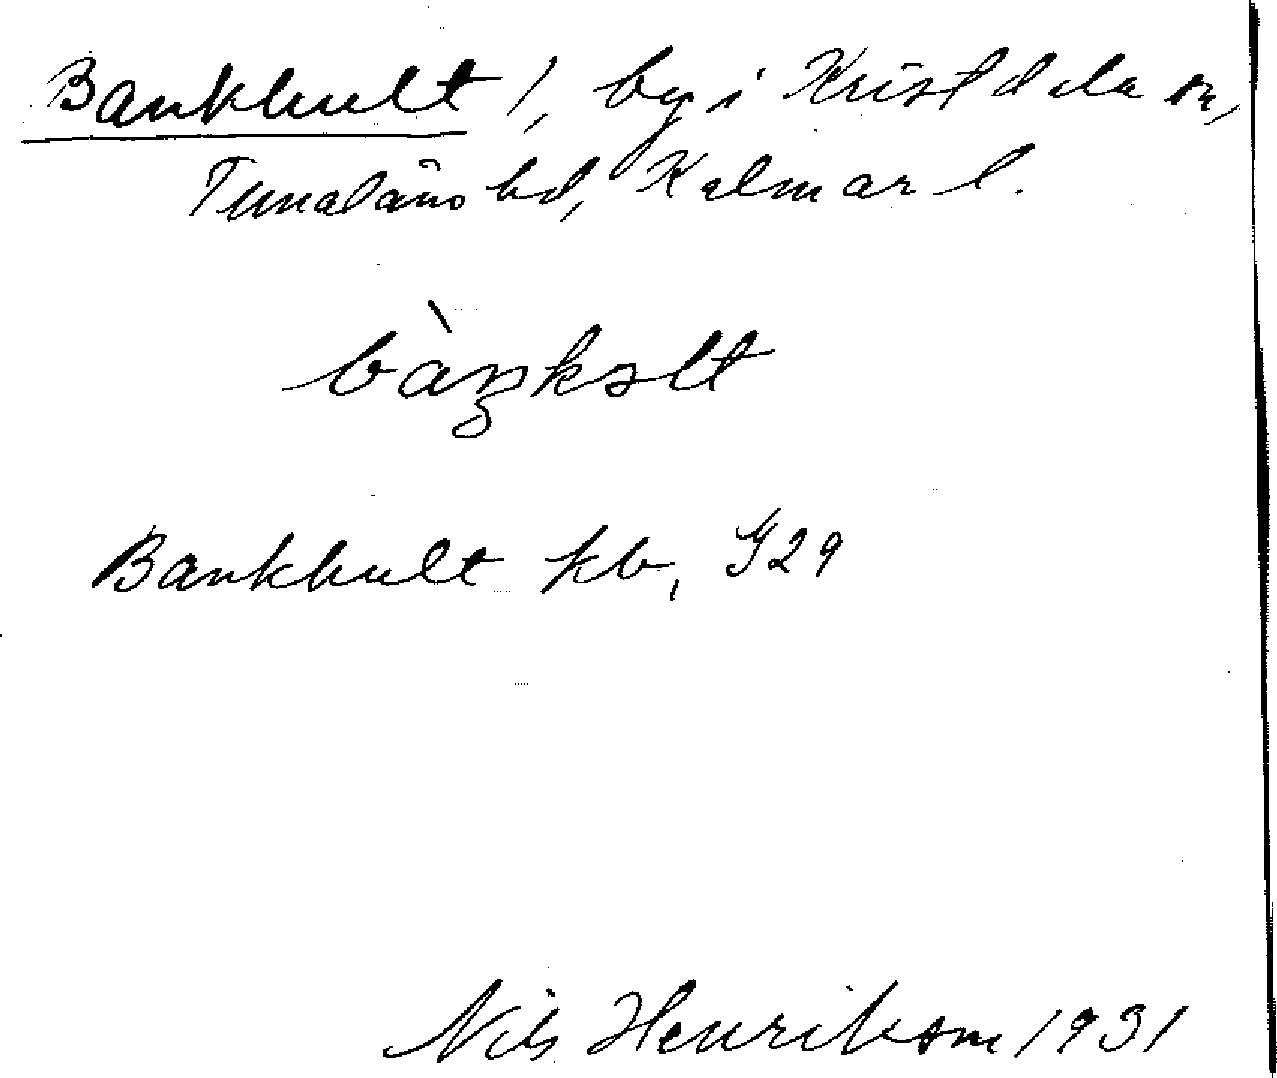 Bankhult !, by i Kristdala sn,
Tunaläns hd, Kalmar l.
bàŋkɔlt
Bankhult kb, G29
Nils Henrikson 1931